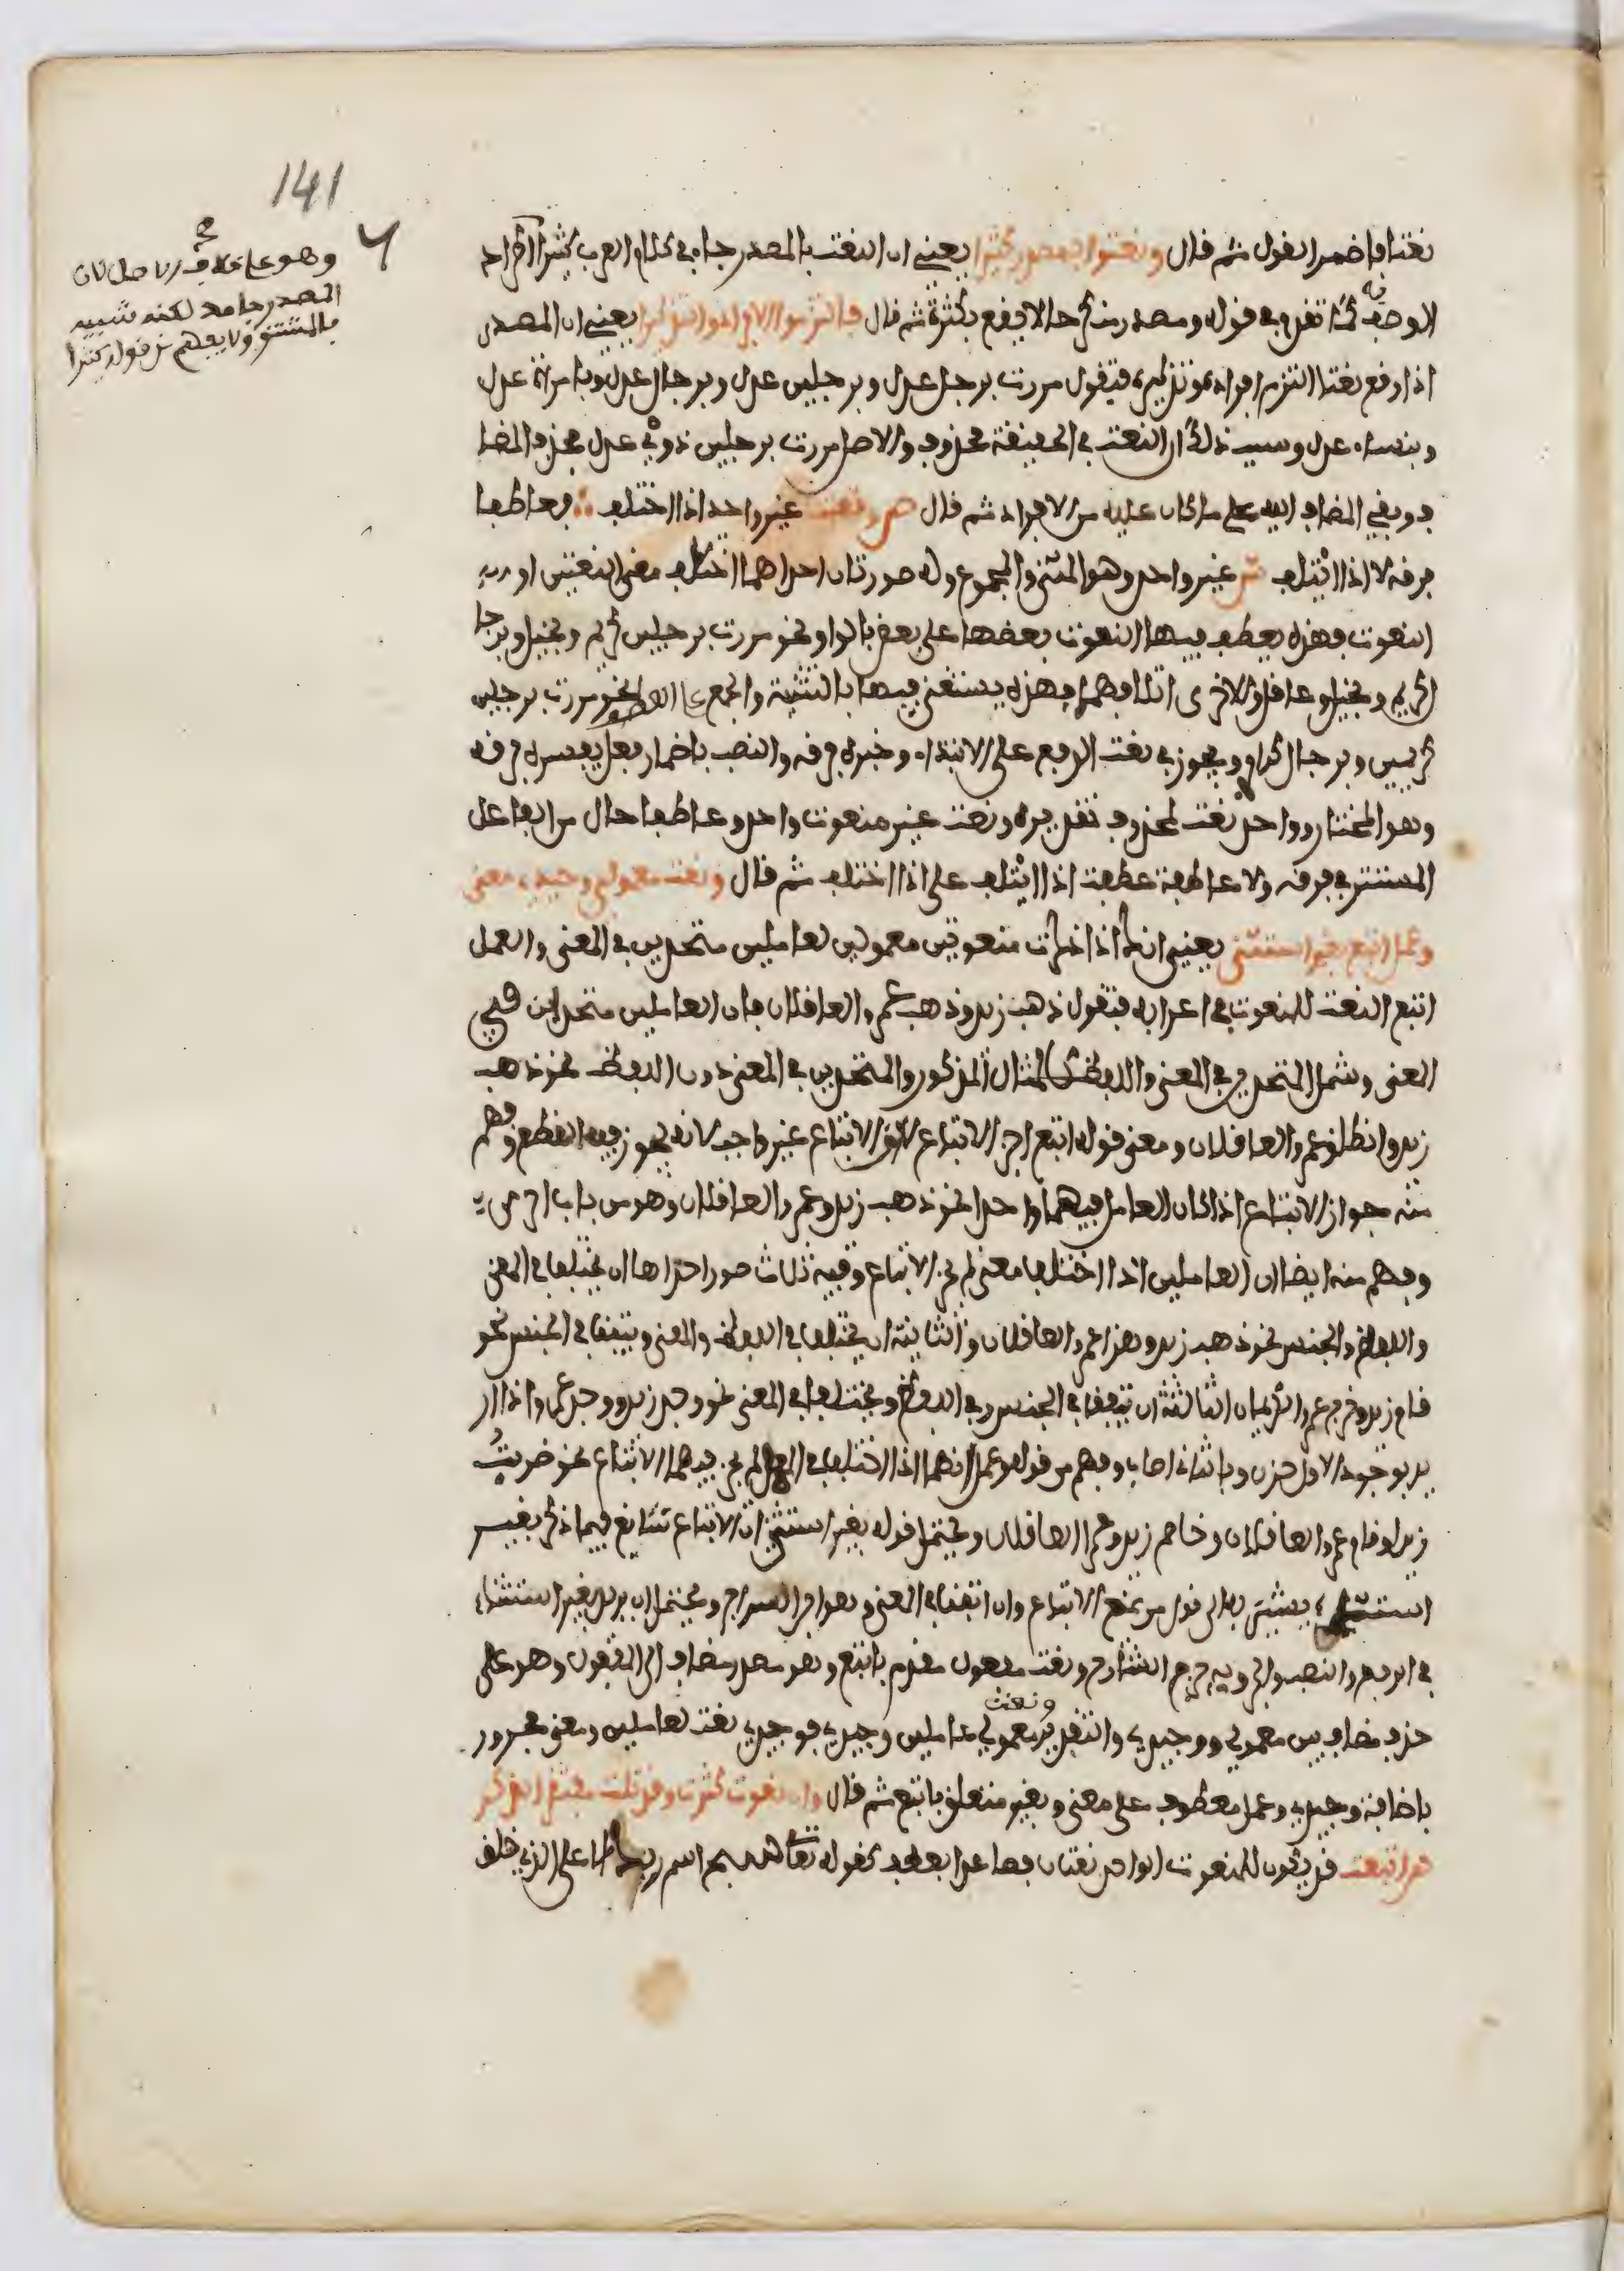 141
وهو على خلاف الاصل لان
المصدر جامد لكنه شبيه
بالمشتق ولا يفهم من قوله كثيرا
نعتا فاضمر القول ثم قال ونعتوا بمصدر كثيرا يعني ان النعت بالمصدر جاء في كلام العرب كثيرا
الوصف كما تقدم في قوله ومصدر منكر حالا يقع بكثرة ثم قال فالتزموا الافراد والتذكيرا يعني ان المصدر
اذا وقع نعتا التزم افراده وتذكيره فتقول مررت برجل عدل وبرجلين عدل وبرجال عدل وبامراة عدل
وبنساء عدل وسبب ذلك ان النعت في الحقيقة محذوف والاصل مررت برجلين ذوي عدل فحذف المضا
ف وبقي المضاف اليه على ما كان عليه من الافراد ثم قال ص ونعت غير واحد اذا اختلف فعاطفا
فرقه لا اذا ائتلف ش غير واحد وهو المثنى والمجموع وله صورتان احداهما اختلف معنى النعتين او
النعوت فهذه يعطف فيها النعوت بعضها على بعض بالواو نحو مررت برجلين كريم وبخيل وبرجا
ل كريم وبخيل وعاقل والاخرى ائتلافهما فهذه يستغنى فيها بالتثنية والجمع عن العطف نحو مررت برجلين
كريمين وبرجال كرام ويجوز في نعت الرفع على الابتداء وخبره فرقه والنصب باضمار فعل يفسره فرقه
وهو المختار وواحد نعت لمحذوف تقديره ونعت غير منعوت واحد وعاطفا حال من الفاعل
المستتر في فرقه ولا عاطفة عطفت اذا ائتلف على اذا اختلف ثم قال ونعت معمولي وحيدي معنى
وعمل اتبع بغير استثنى يعني انك اذا ذكرت منعوتين معمولين لعاملين متحدين في المعنى والعمل
اتبع النعت للمنعوت في اعرابه فتقول ذهب زيد وذهب عمرو العاقلان فان العاملين متحدان في
المعنى وشمل المتحدين في المعنى واللفظ كالمثال المذكور والمتحدين في المعنى دون اللفظ نحو ذهب
زيد وانطلق عمرو العاقلان ومعنى قوله اتبع اجز الاتباع لان الاتباع غير واجب لانه يجوز فيه القطع وفهم
منه جواز الاتباع اذا كان العامل فيهما واحدا نحو ذهب زيد وعمرو العاقلان وهو من باب احرى
وفهم منه ايضا ان العاملين اذا اختلفا معنى لم يجز الاتباع وفيه ثلاث صور احداها ان يختلفا في المعنى
واللفظ والجنس نحو ذهب زيد وهذا عمرو العاقلان والثانية ان يختلفا في اللفظ والمعنى ويتفقا في الجنس نحو
قام زيد وخرج عمرو الكريمان الثالثة ان يتفقا في الجنس وفي اللفظ ويختلفا في المعنى نحو وجد زيد ووجد عمرو اذا ار
يد بوجد الاول حزن وبالثاني اصاب وفهم من قوله وعمل انهما اذا اختلفا في العمل لم يجز فيهما الاتباع نحو ضربت
زيدا وقام عمرو العاقلان وخاصم زيد وعمرا العاقلان ويحتمل قوله بغير استثنى ان الاتباع شائع فيما ذكر بغير
استثناء يشير به الى قول من يمنع الاتباع وان اتفقا في المعنى وهو ابن السراج ويحتمل ان يريد بغير استثناء
في الرفع والنصب والجر وبه جزم الشارح ونعت مفعول مقدم باتبع وهو مصدر مضاف الى المفعول وهو على
حذف مضاف بين معمولي ووحيدي والتقدير ونعت معمولي عاملين وحيدي فوحيدي نعت لعاملين ومعنى مجرور
باضافة وحيدي وعمل معطوف على معنى وبغير متعلق باتبع ثم قال وان نعوت كثرت وقد تلت مفتقرا لذكر
هن اتبعت قد يكون للمنعوت الواحد نعتان فصاعدا بعطف كقوله تعالى سبح اسم ربك الاعلى الذي خلق